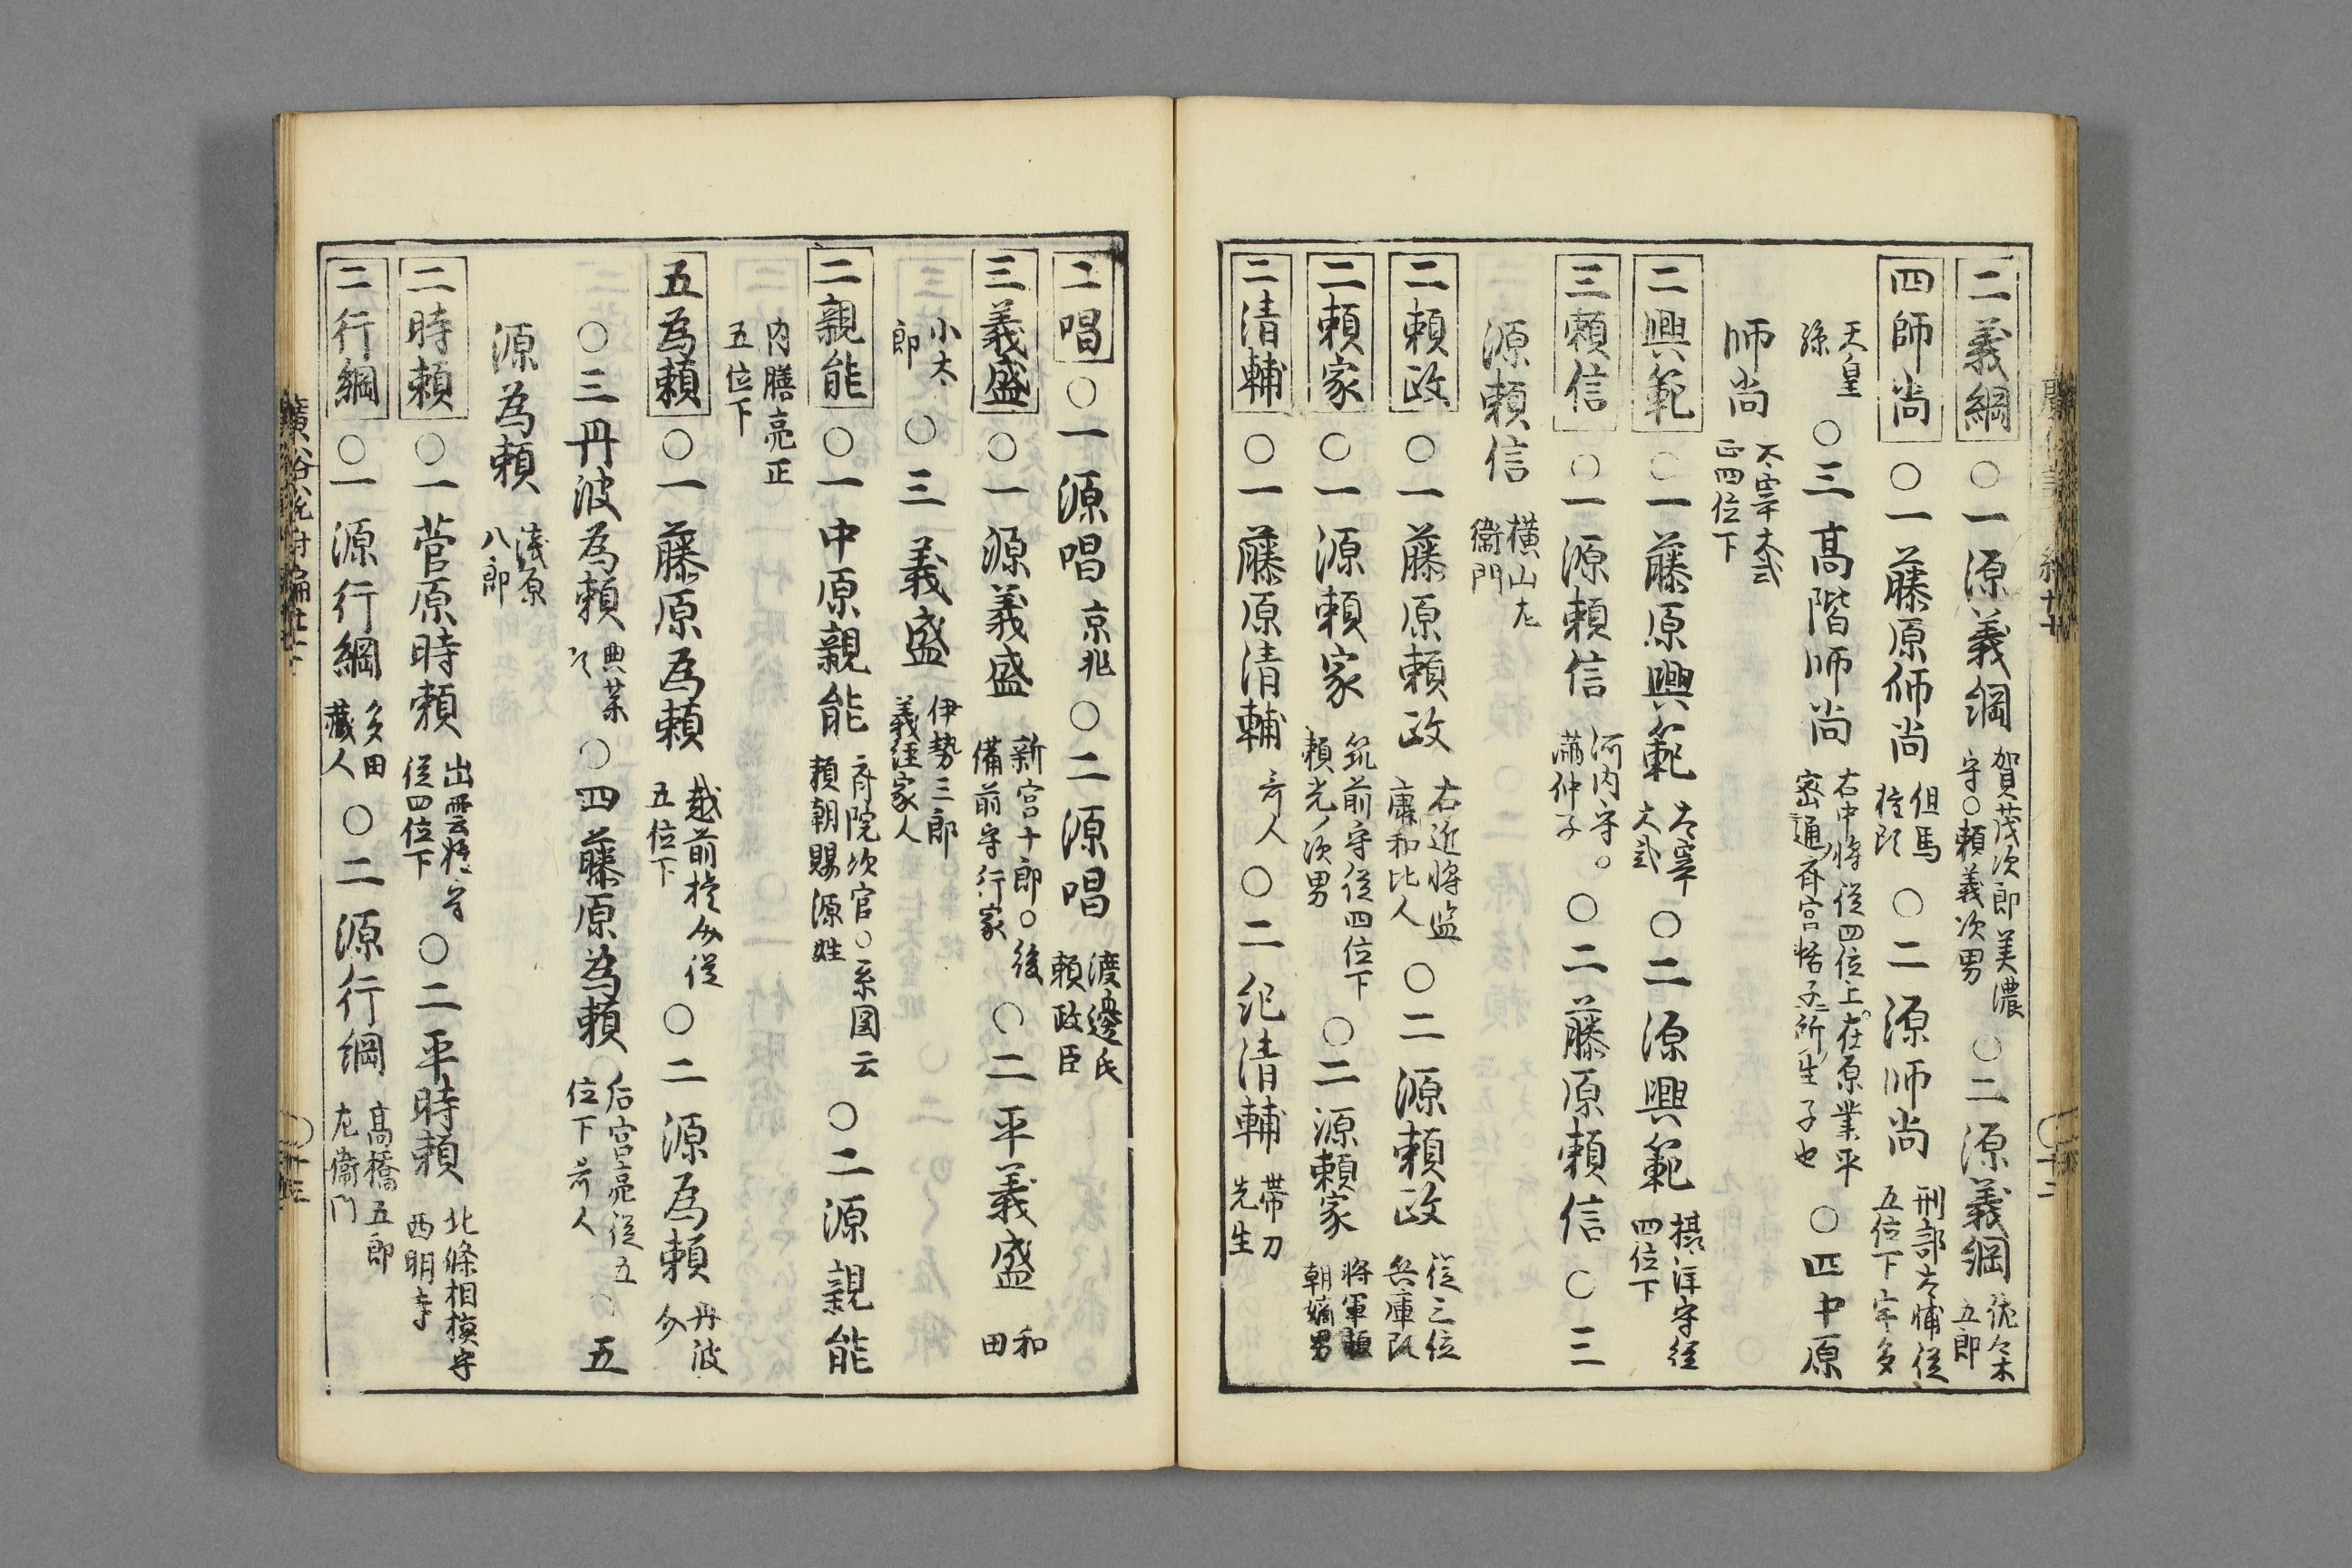 二義綱 ○一源義綱 賀茂次郎美濃守○頼義次男 ○二源義綱 佐々木五郎
四師尚 ○一藤原師尚 但馬権頭 ○二源師尚 刑部大輔従五位下宇多
天皇孫 ○三高階师尚 右中将従四位上在原業平密通ノ斉宮恬子所生子也 ○四中原
师尚 大宰大弐正四位下
二興範 ○一藤原興範 大宰大弐 ○二源興範 摂津守従四位下
三頼信 ○一源頼信 河内守。満仲子 ○二藤原頼信 ○三
源頼信 横山左衛門
二頼政 ○一藤原頼政 右近将监廉和比人 ○二源頼政 従三位兵庫頭
二頼家 ○一源頼家 筑前守従四位下頼光ノ次男 ○二源頼家 将軍頼朝嫡男
二清輔 ○一藤原清輔 哥人 ○二紀清輔 帯刀先生
二唱 ○一源唱 京兆 ○二源唱 渡邊氏頼政臣
三義盛 ○一源義盛 新宮十郎○後備前守行家 ○二平義盛 和田
小太郎 ○三義盛 伊勢三郎義経家人
二親能 ○一中原親能 斉院次官○系図云頼朝賜源姓 ○二源親能
内膳亮正五位下
五為頼 ○一藤原為頼 越前権介従五位下 ○二源為頼 丹波介
○三丹波為頼 典薬 ○四藤原為頼 后宮亮従五位下哥人 ○五
源為頼 浅原八郎
二時頼 ○一菅原時頼 出雲権守従四位下 ○二平時頼 北條相模守西明寺
二行綱 ○一源行綱 多田蔵人 ○二源行綱 高橋五郎左衛門